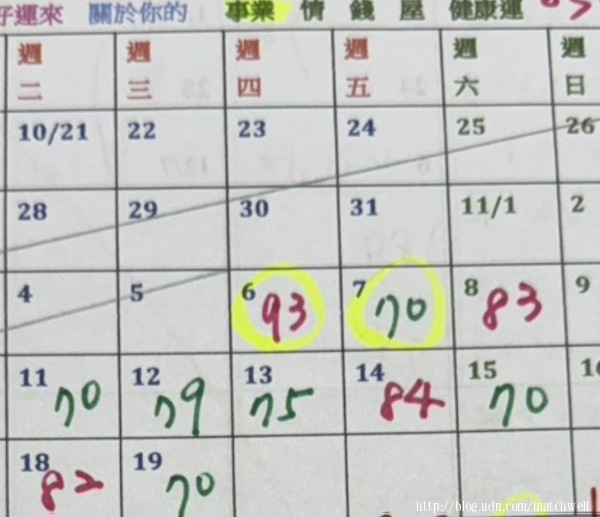 好運來 關於你的 事業 情 錢 屋 健康運
週二 週三 週四 週五 週六 週日
10/21 22 23 24 25 26
28 29 30 31 11/1 2
4 5 6 93 7 70 8 83 9
11 70 12 79 13 75 14 84 15 70
18 82 19 70
http://blog.udn.com/matchwell